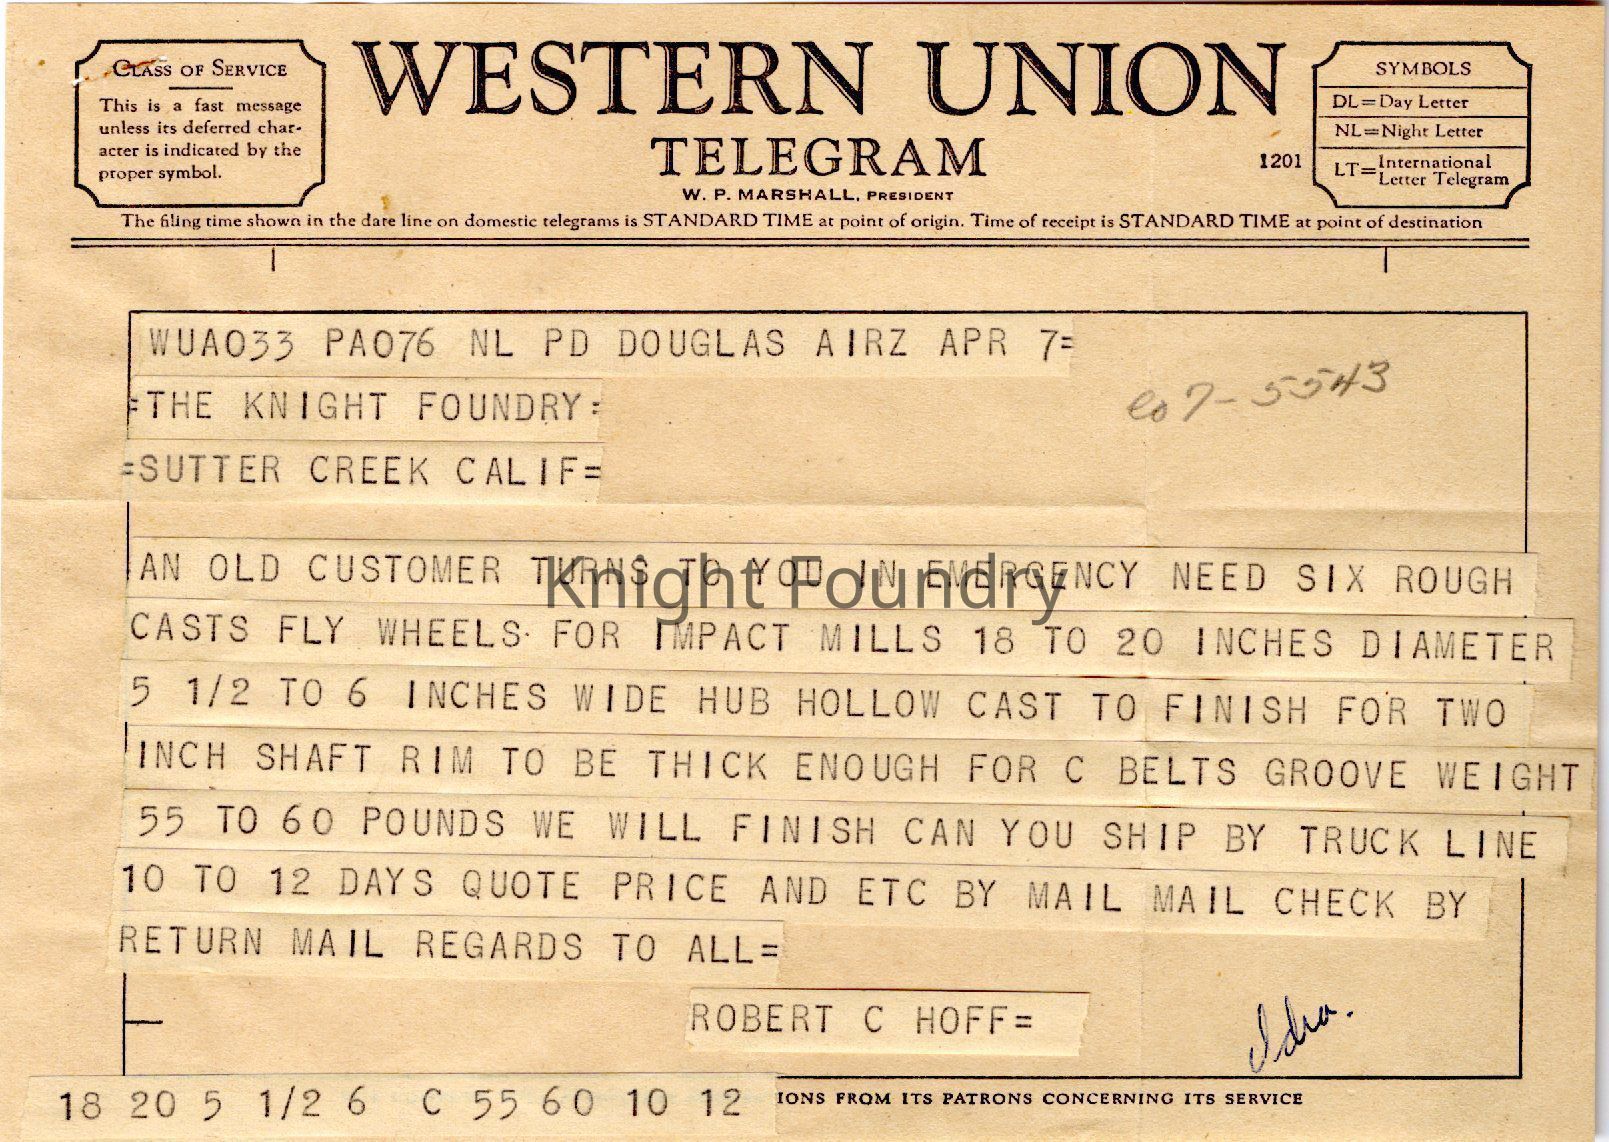 CLASS OF SERVICE
This is a fast message
unless its deferred char-
acter is indicated by the
proper symbol.
WESTERN UNION
TELEGRAM
W. P. MARSHALL, PRESIDENT
1201
SYMBOLS
DL=Day Letter
NL=Night Letter
LT=International
Letter Telegram
The filing time shown in the date line on domestic telegrams is STANDARD TIME at point of origin. Time of receipt is STANDARD TIME at point of destination
WUA033 PA076 NL PD DOUGLAS AIRZ APR 7=
=THE KNIGHT FOUNDRY=
7-5543
=SUTTER CREEK CALIF=
AN OLD CUSTOMER TURNS TO YOU IN EMERGENCY NEED SIX ROUGH
Knight Foundry
CASTS FLY WHEELS FOR IMPACT MILLS 18 TO 20 INCHES DIAMETER
5 1/2 TO 6 INCHES WIDE HUB HOLLOW CAST TO FINISH FOR TWO
INCH SHAFT RIM TO BE THICK ENOUGH FOR C BELTS GROOVE WEIGHT
55 TO 60 POUNDS WE WILL FINISH CAN YOU SHIP BY TRUCK LINE
10 TO 12 DAYS QUOTE PRICE AND ETC BY MAIL MAIL CHECK BY
RETURN MAIL REGARDS TO ALL=
ROBERT C HOFF=
18 20 5 1/2 6 C 55 60 10 12
IONS FROM ITS PATRONS CONCERNING ITS SERVICE